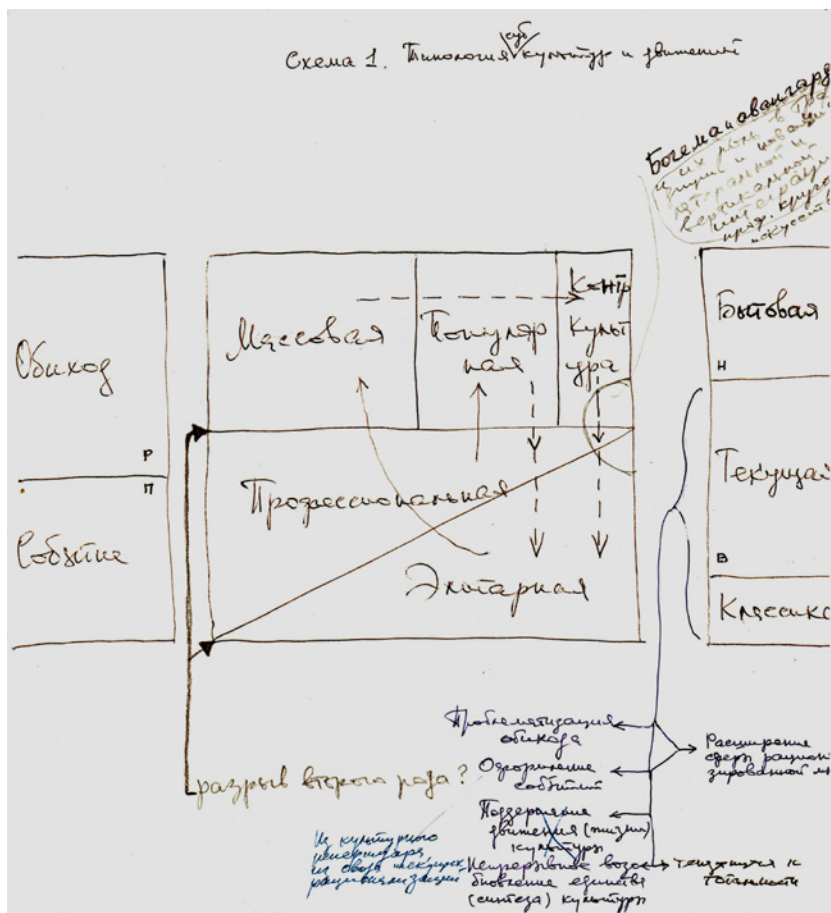 Схема 1. Типология суб культур и движений
Богема и авангард
и их роль в
и
латеральной и
вертикальной
интеграции
проф. кругов
искусств
Обиход
Р
П
Событие
Массовая
Популяр
ная
Контр
культ
ура
Профессиональная
Элитарная
Бытовая
Н
Текущая
В
Классика
разрыв второго рода?
Проблематизация
обихода
Оформление
событий
Поддержание
движения (жизни)
культуры
Непрерывное возо-
бновление единства
(синтеза) культуры
Расширение
сферы рацион
зированной
тянущихся к
тотальности
Из культурного
менеджмента
из свода текущих
рационализаций